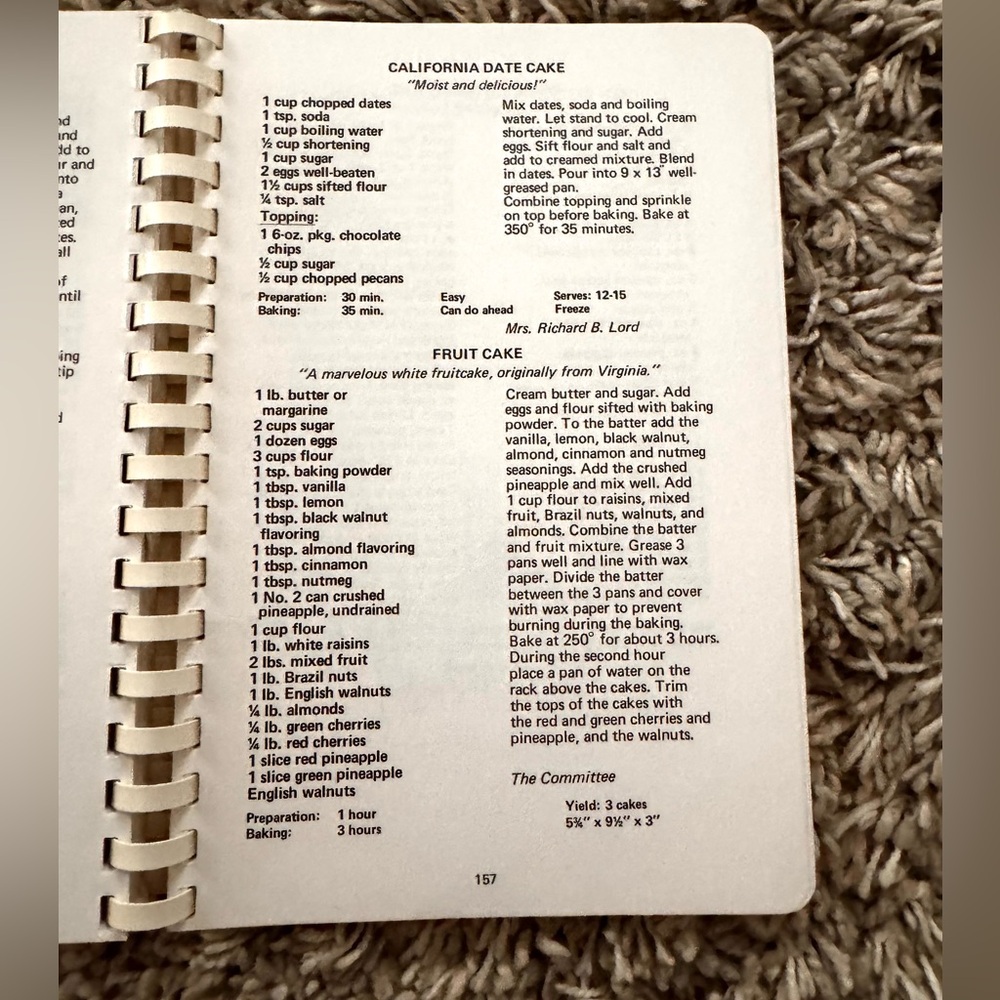 nd
und
dd to
ur and
nto
an,
ed
es.
all
of
ntil
ing
tip
CALIFORNIA DATE CAKE
"Moist and delicious!"
1 cup chopped dates
1 tsp. soda
1 cup boiling water
½ cup shortening
1 cup sugar
2 eggs well-beaten
1½ cups sifted flour
¼ tsp. salt
Topping:
1 6-oz. pkg. chocolate
chips
½ cup sugar
½ cup chopped pecans
Mix dates, soda and boiling
water. Let stand to cool. Cream
shortening and sugar. Add
eggs. Sift flour and salt and
add to creamed mixture. Blend
in dates. Pour into 9 x 13" well-
greased pan.
Combine topping and sprinkle
on top before baking. Bake at
350° for 35 minutes.
Preparation: 30 min. Easy Serves: 12-15
Baking: 35 min. Can do ahead Freeze
Mrs. Richard B. Lord
FRUIT CAKE
"A marvelous white fruitcake, originally from Virginia."
1 lb. butter or
margarine
2 cups sugar
1 dozen eggs
3 cups flour
1 tsp. baking powder
1 tbsp. vanilla
1 tbsp. lemon
1 tbsp. black walnut
flavoring
1 tbsp. almond flavoring
1 tbsp. cinnamon
1 tbsp. nutmeg
1 No. 2 can crushed
pineapple, undrained
1 cup flour
1 lb. white raisins
2 lbs. mixed fruit
1 lb. Brazil nuts
1 lb. English walnuts
¼ lb. almonds
¼ lb. green cherries
¼ lb. red cherries
1 slice red pineapple
1 slice green pineapple
English walnuts
Cream butter and sugar. Add
eggs and flour sifted with baking
powder. To the batter add the
vanilla, lemon, black walnut,
almond, cinnamon and nutmeg
seasonings. Add the crushed
pineapple and mix well. Add
1 cup flour to raisins, mixed
fruit, Brazil nuts, walnuts, and
almonds. Combine the batter
and fruit mixture. Grease 3
pans well and line with wax
paper. Divide the batter
between the 3 pans and cover
with wax paper to prevent
burning during the baking.
Bake at 250° for about 3 hours.
During the second hour
place a pan of water on the
rack above the cakes. Trim
the tops of the cakes with
the red and green cherries and
pineapple, and the walnuts.
The Committee
Preparation: 1 hour
Baking: 3 hours
Yield: 3 cakes
5¾" x 9½" x 3"
157